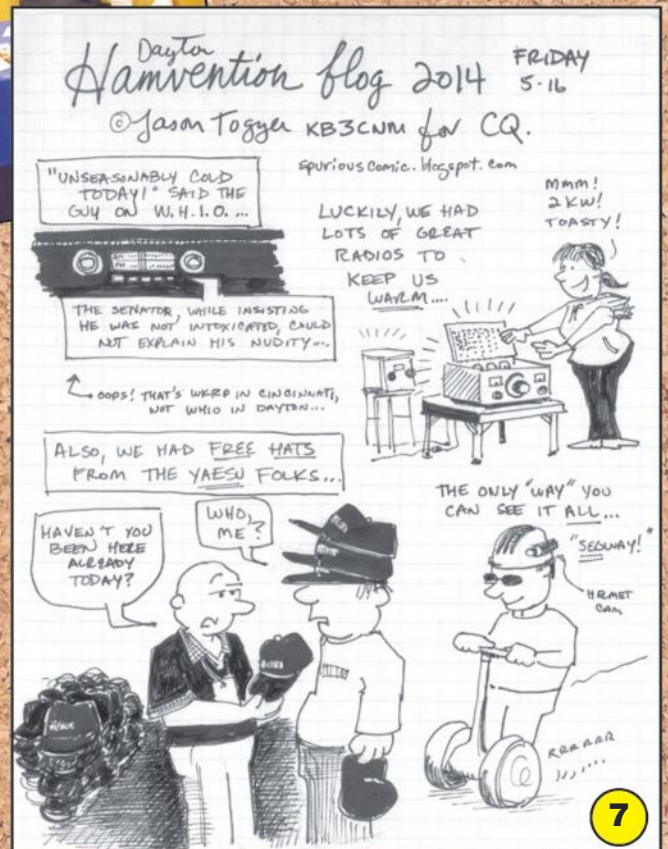 Dayton
Hamvention blog 2014
FRIDAY
5-16
© Jason Togyer KB3CNM for CQ.
spuriouscomic.blogspot.com
"UNSEASONABLY COLD
TODAY!" SAID THE
GUY ON W.H.I.O. ...
THE SENATOR, WHILE INSISTING
HE WAS NOT INTOXICATED, COULD
NOT EXPLAIN HIS NUDITY...
OOPS! THAT'S WKRP IN CINCINNATI,
NOT WHIO IN DAYTON...
LUCKILY, WE HAD
LOTS OF GREAT
RADIOS TO
KEEP US
WARM....
MMM!
2 KW!
TOASTY!
ALSO, WE HAD FREE HATS
FROM THE YAESU FOLKS...
HAVEN'T YOU
BEEN HERE
ALREADY
TODAY?
WHO,
ME?
THE ONLY "WAY" YOU
CAN SEE IT ALL...
"SEGWAY!"
HELMET
CAM
RRRRRR
7